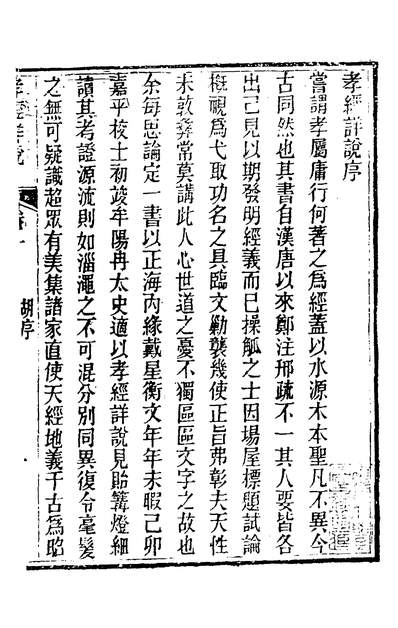 孝經詳說序
嘗謂孝屬庸行何著之爲經蓋以水源木本聖凡不異今
古同然也其書自漢唐以來鄭注邢疏不一其人要皆各
出己見以期發明經義而已操觚之士因場屋標題試論
槪視爲弋取功名之具臨文勦襲幾使正旨弗彰夫天性
未敦彝常莫講此人心世道之憂不獨區區文字之故也
余每思論定一書以正海內緣戴星衡文年年未暇己卯
嘉平校士初竣牟陽冉太史適以孝經詳說見貽篝燈細
讀其考證源流則如淄澠之不可混分別同異復令毫髮
之無可疑識超眾有美集諸家直使天經地義千古爲昭
孝經詳說
序
一
胡序